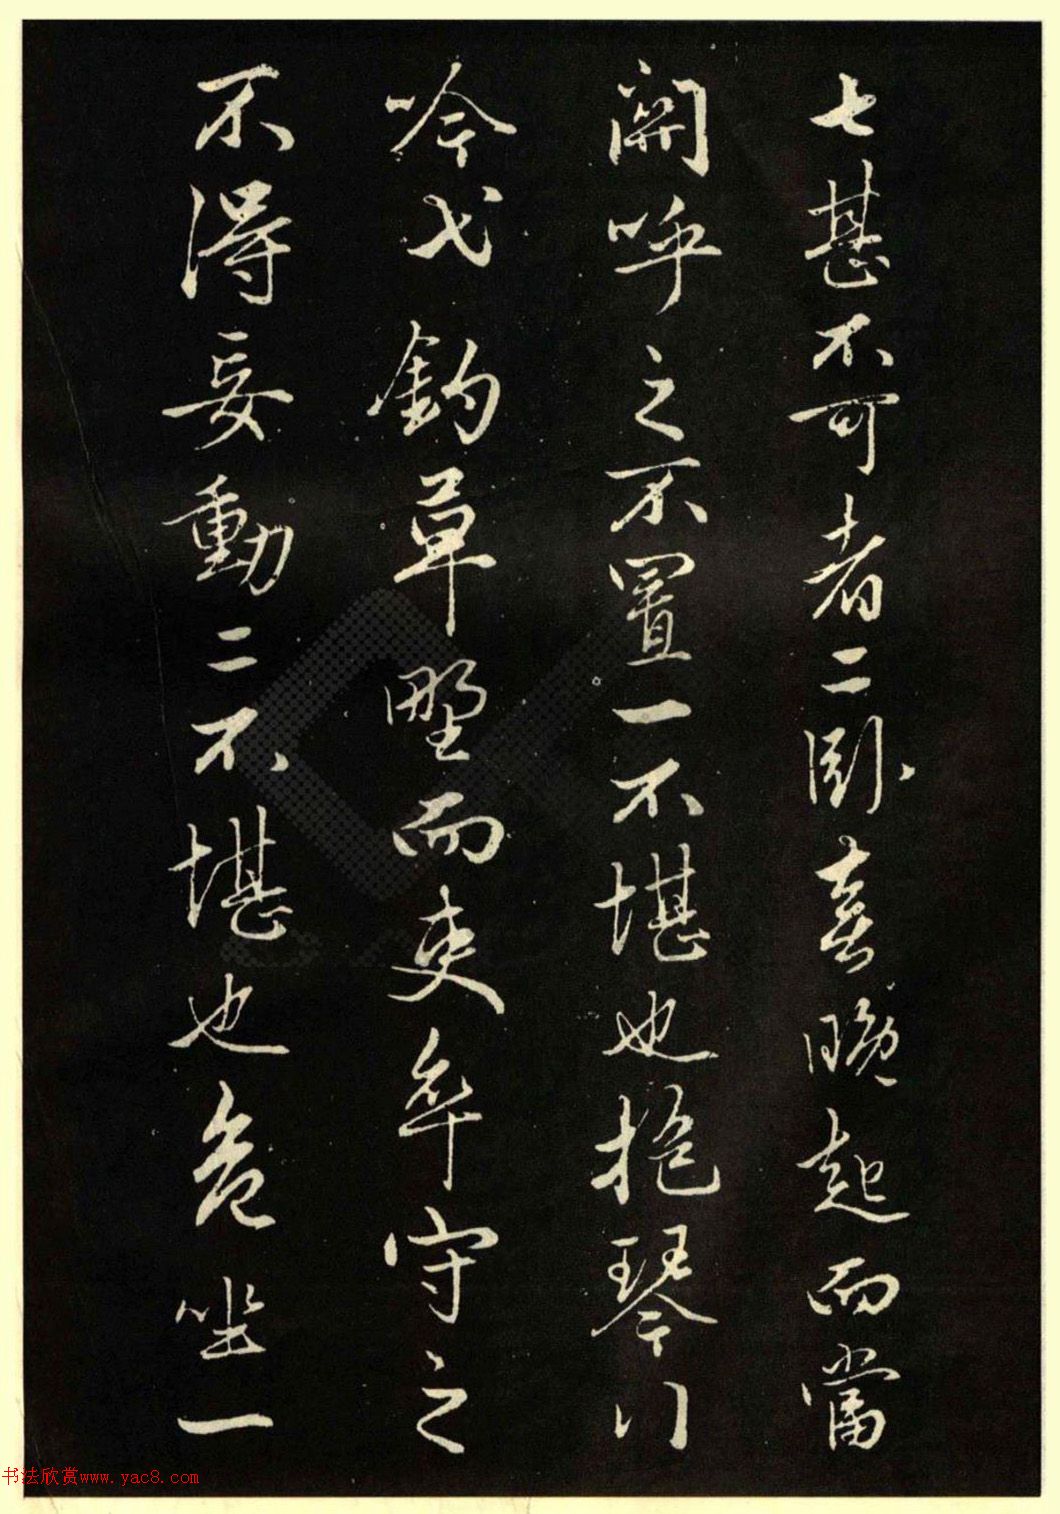 七甚不可者二卧喜晚起而當
關呼之不置一不堪也抱琴行
吟弋釣草野而吏卒守之
不得妄動二不堪也危坐一
书法欣赏www.yac8.com